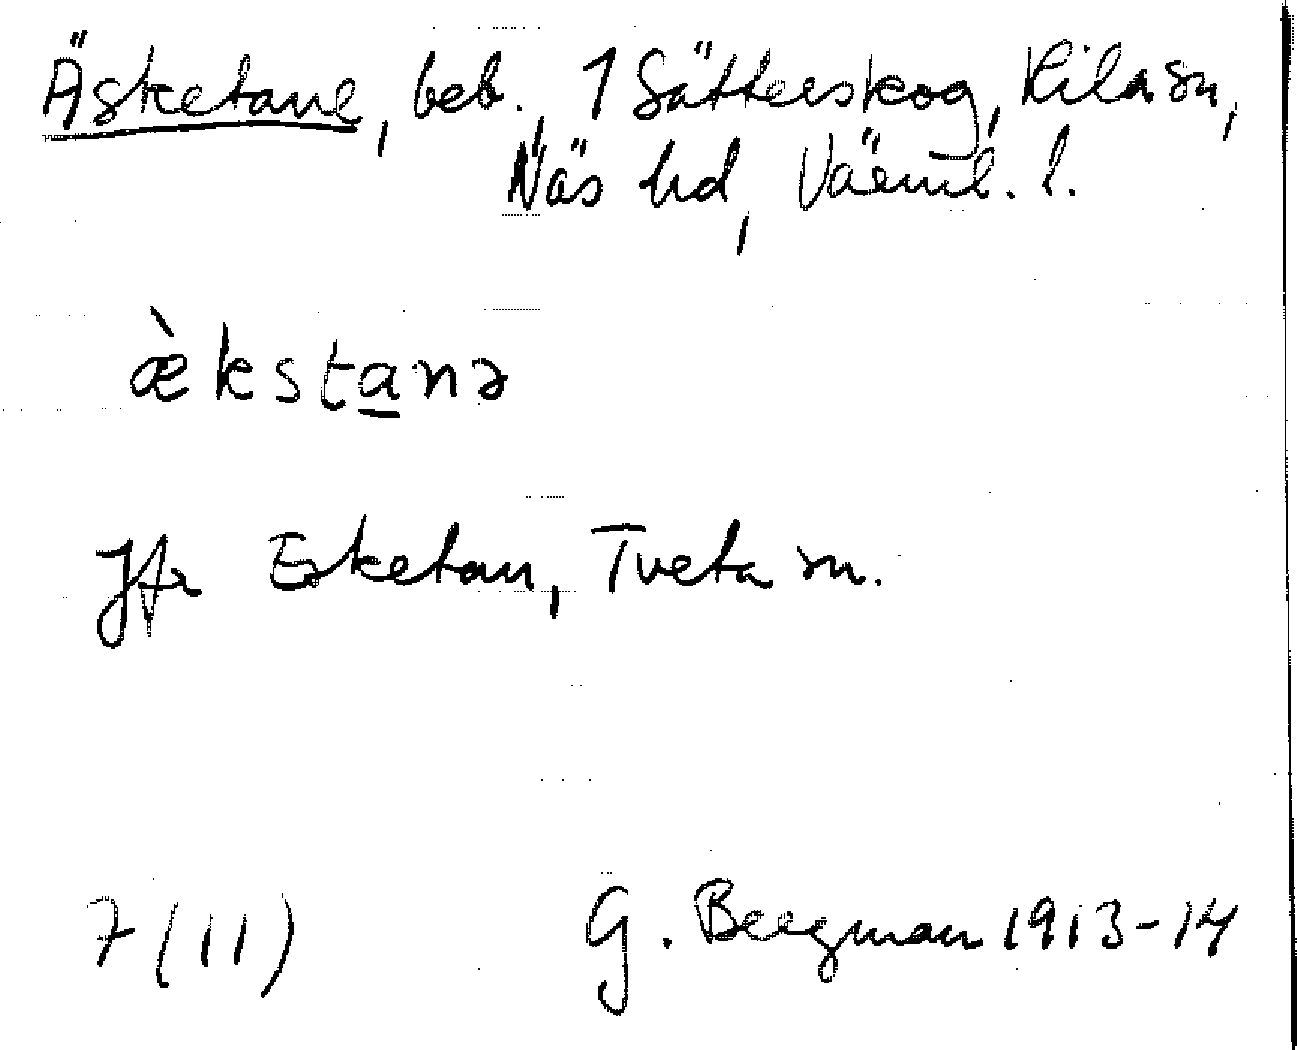 Äsketane, beb. 1 Sätterskog, Kila sn,
Näs hd, Värml. l.
æ̀ksta̲nə
Jfr Esketan, Tveta sn.
7(11)
G. Bergman 1913-14